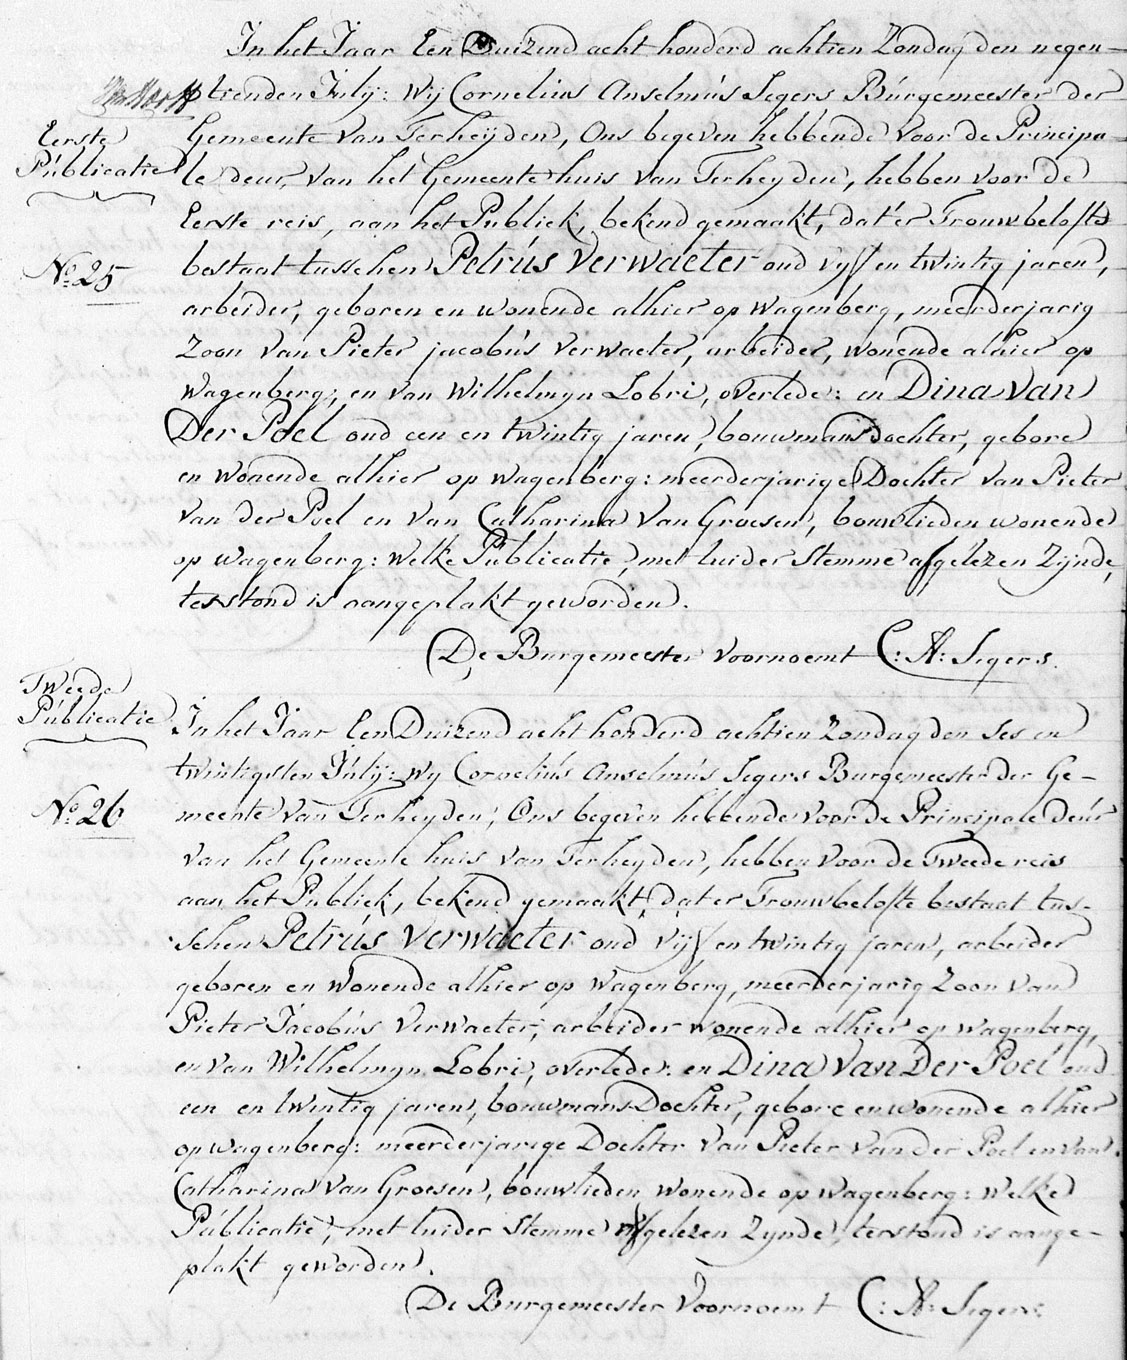 In het Jaar Een Duizend acht honderd achtien Zondag den negen-
tienden Julij: Wij Cornelius Anselmús Segers Búrgemeester der
Eerste
Publicatie
Gemeente van Terheijden, Ons begeven hebbende voor de Principa-
le deur, van het Gemeente huis van Terheyden, hebben voor de
Eerste reis, aan het Publiek, bekend gemaakt, dat'er Trouwbelofte
No. 25
bestaat tusschen Petrús Verwaeter oud vijf en twintig jaren,
arbeider, geboren en wonende alhier op Wagenberg, meerderjarig
Zoon van Pieter jacobús Verwaeter, arbeider, wonende alhier op
Wagenberg; en van Wilhelmyn Lobri, overlede: en Dina van
Der Poel oud een en twintig jaren, bouwmans Dochter, gebore
en wonende alhier op Wagenberg: meerderjarige Dochter van Pieter
van der Poel en van Catharina Van Groesen, bouwlieden wonende
op Wagenberg: Welke Públicatie, met luider Stemme afgelezen Zijnde,
terstond is aangeplakt geworden.
De Burgemeester voornoemt C: A: Segers.
Tweede
Públicatie
In het Jaar Een Duizend acht honderd achtien Zondag den Ses en
twintigsten Júlij: Wij Cornelius Anselmús Segers Burgemeester der Ge-
No. 26
meente van Terheyden, Ons begeven hebbende voor de Principale deúr
van het Gemeente huis van Terheyden, hebben voor de Tweede reis
aan het Publiek, bekend gemaakt, dat er Trouwbelofte bestaat tus-
schen Petrús Verwaeter oud vijf en twintig jaren, arbeider
geboren en Wonende alhier op Wagenberg, meerderjarig Zoon van
Pieter Jacobús Verwaeter, arbeider wonende alhier op Wagenberg,
en van Wilhelmyn Lobri, overlede: en Dina Van Der Poel oud
een en twintig jaren, bouwmans Dochter, gebore en wonende alhier
op Wagenberg: meerderjarige Dochter van Pieter van der Poel en van
Catharina Van Groesen, bouwlieden wonende op Wagenberg: Welke
Públicatie, met luider Stemme afgelezen Zynde, terstond is aange-
plakt geworden.
De Burgemeester Voornoemt C: A: Segers